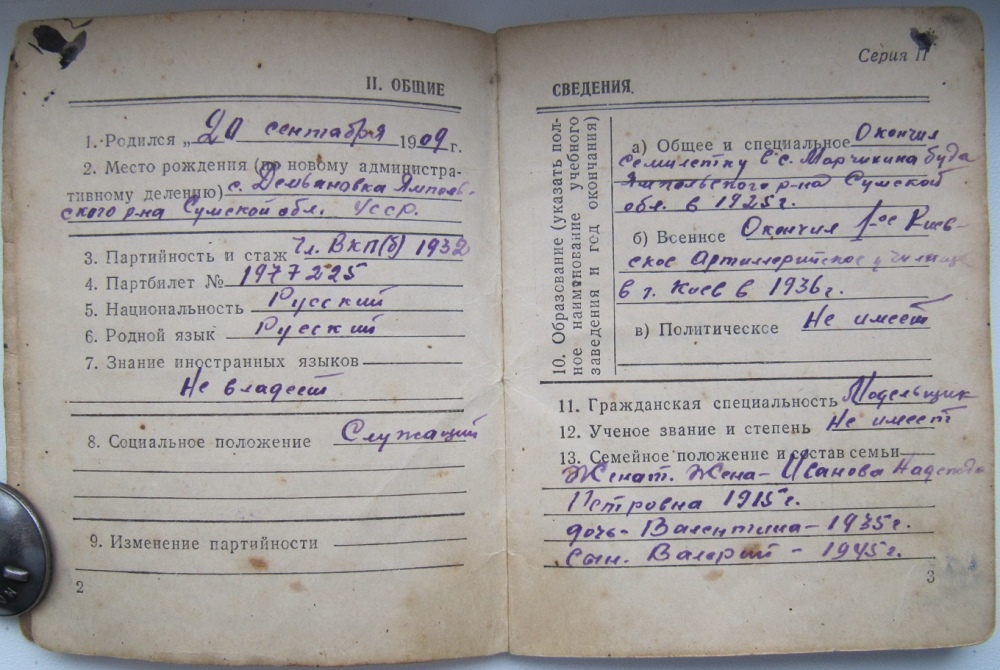 II. ОБЩИЕ
1. Родился „ 20 сентября 1909 г.
2. Место рождения (по новому администра-
тивному делению) с. Демьановка Ямполь-
ского р-на Сумской обл. УССР.
3. Партийность и стаж Чл. ВКП(б) 1932
4. Партбилет № 1977225
5. Национальность Русский
6. Родной язык Русский
7. Знание иностранных языков
Не владеет
8. Социальное положение Служащий
9. Изменение партийности
2
Серия П
СВЕДЕНИЯ.
10. Образование (указать пол-
ное наименование учебного
заведения и год окончания)
а) Общее и специальное Окончил
семилетку в с. Марчихина буда
Ямпольского р-на Сумской
обл. в 1925г.
б) Военное Окончил 1-ое Киев-
ское Артиллерийское училище
в г. Киев в 1936г.
в) Политическое Не имеет
11. Гражданская специальность Модельщик
12. Ученое звание и степень Не имеет
13. Семейное положение и состав семьи
Женат. Жена - Иванова Надежда
Петровна 1915г.
дочь - Валентина - 1935г.
Сын. Валерий - 1945г.
3